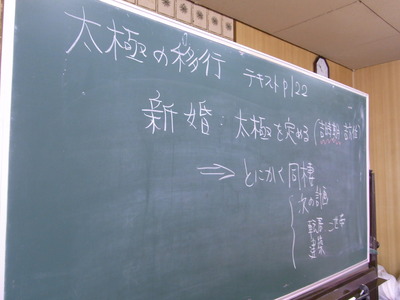 太極の移行 テキストp122
新婚：太極を定める(
⇒とにかく同棲
次の計画
転居
建築